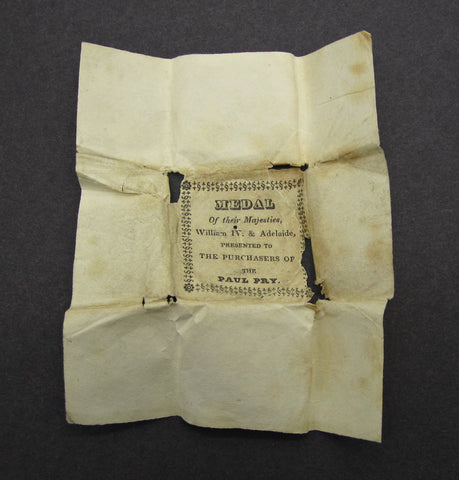 MEDAL
Of their Majesties,
William IV. & Adelaide,
PRESENTED TO
THE PURCHASERS OF
THE
PAUL PRY.